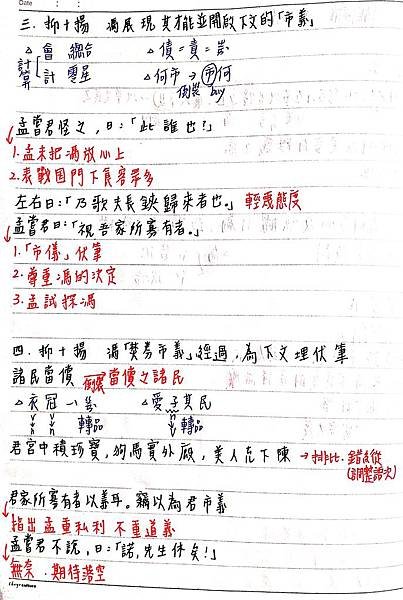 Date
三. 抑+揚 馮展現其才能並開啟下文的「市義」
計算 △會 總合 △債=責=ㄓㄞˋ
計 零星 △何市→市何
倒裝 buy
孟嘗君怪之,曰:「此誰也?」
1.孟未把馮放心上
2.表戰国門下食客眾多
左右曰:「乃歌夫長鋏歸來者也。」 輕蔑態度
孟嘗君曰:「視吾家所寡有者。」
1.「市義」伏筆
2.尊重馮的決定
3.孟試探馮
四. 抑+揚 馮「焚券市義」經過,為下文埋伏筆
諸民當償 倒裝→ 當償之諸民
△衣冠 △愛子其民
n n v v 轉品 n v 轉品
君宮中積珍寶,狗馬實外廄,美人充下陳 →排比.錯綜
(調整語次)
君家所寡有者以義耳。竊以為君市義
指出孟重私利 不重道義
孟嘗君不說,曰:「諾,先生休矣!」
無奈.期待落空